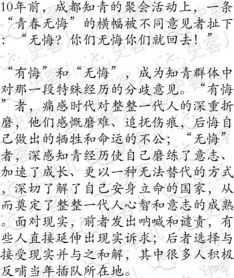 10年前，成都知青的聚会活动上，一条
“青春无悔”的横幅被不同意见者扯下
：“无悔？你们无悔你们就回去！”
“有悔”和“无悔”，成为知青群体中
对那一段特殊经历的分歧意见。“有悔
”者，痛感时代对整整一代人的深重折
磨，他们感慨磨难、追抚伤痕，后悔自
己做出的牺牲和命运的不公；“无悔”
者，深感知青经历使自己磨练了意志、
加速了成长、更以一种无法替代的方式
，深切了解了自己安身立命的国家，从
而奠定了整整一代人心智和意志的成熟
。面对现实，前者发出呐喊和谴责，有
些人直接延伸出现实诉求；后者选择与
接受现实并与之和解，其中很多人积极
反哺当年插队所在地。